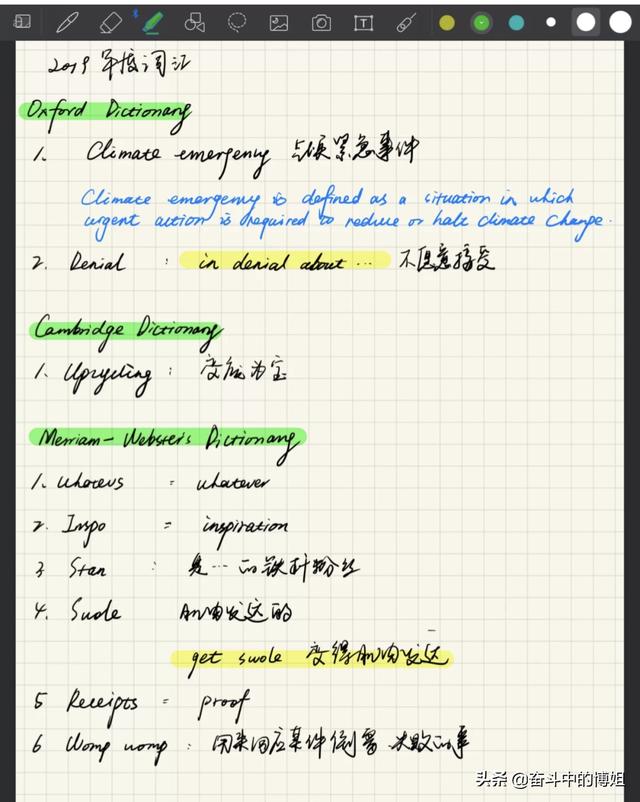 2019 年度词汇
Oxford Dictionary
1. Climate emergency 气候紧急事件
Climate emergency is defined as a situation in which
urgent action is required to reduce or halt climate change.
2. Denial : in denial about ... 不愿意接受
Cambridge Dictionary
1. Upcycling : 变废为宝
Merriam-Webster's Dictionary
1. Whatevs = whatever
2. Inspo = inspiration
3 Stan : 是…的铁杆粉丝
4. Swole 肌肉发达的
get swole 变得肌肉发达
5 Receipts = proof
6 Womp womp : 用来回应某件倒霉 失败的事
头条 @奋斗中的博姐